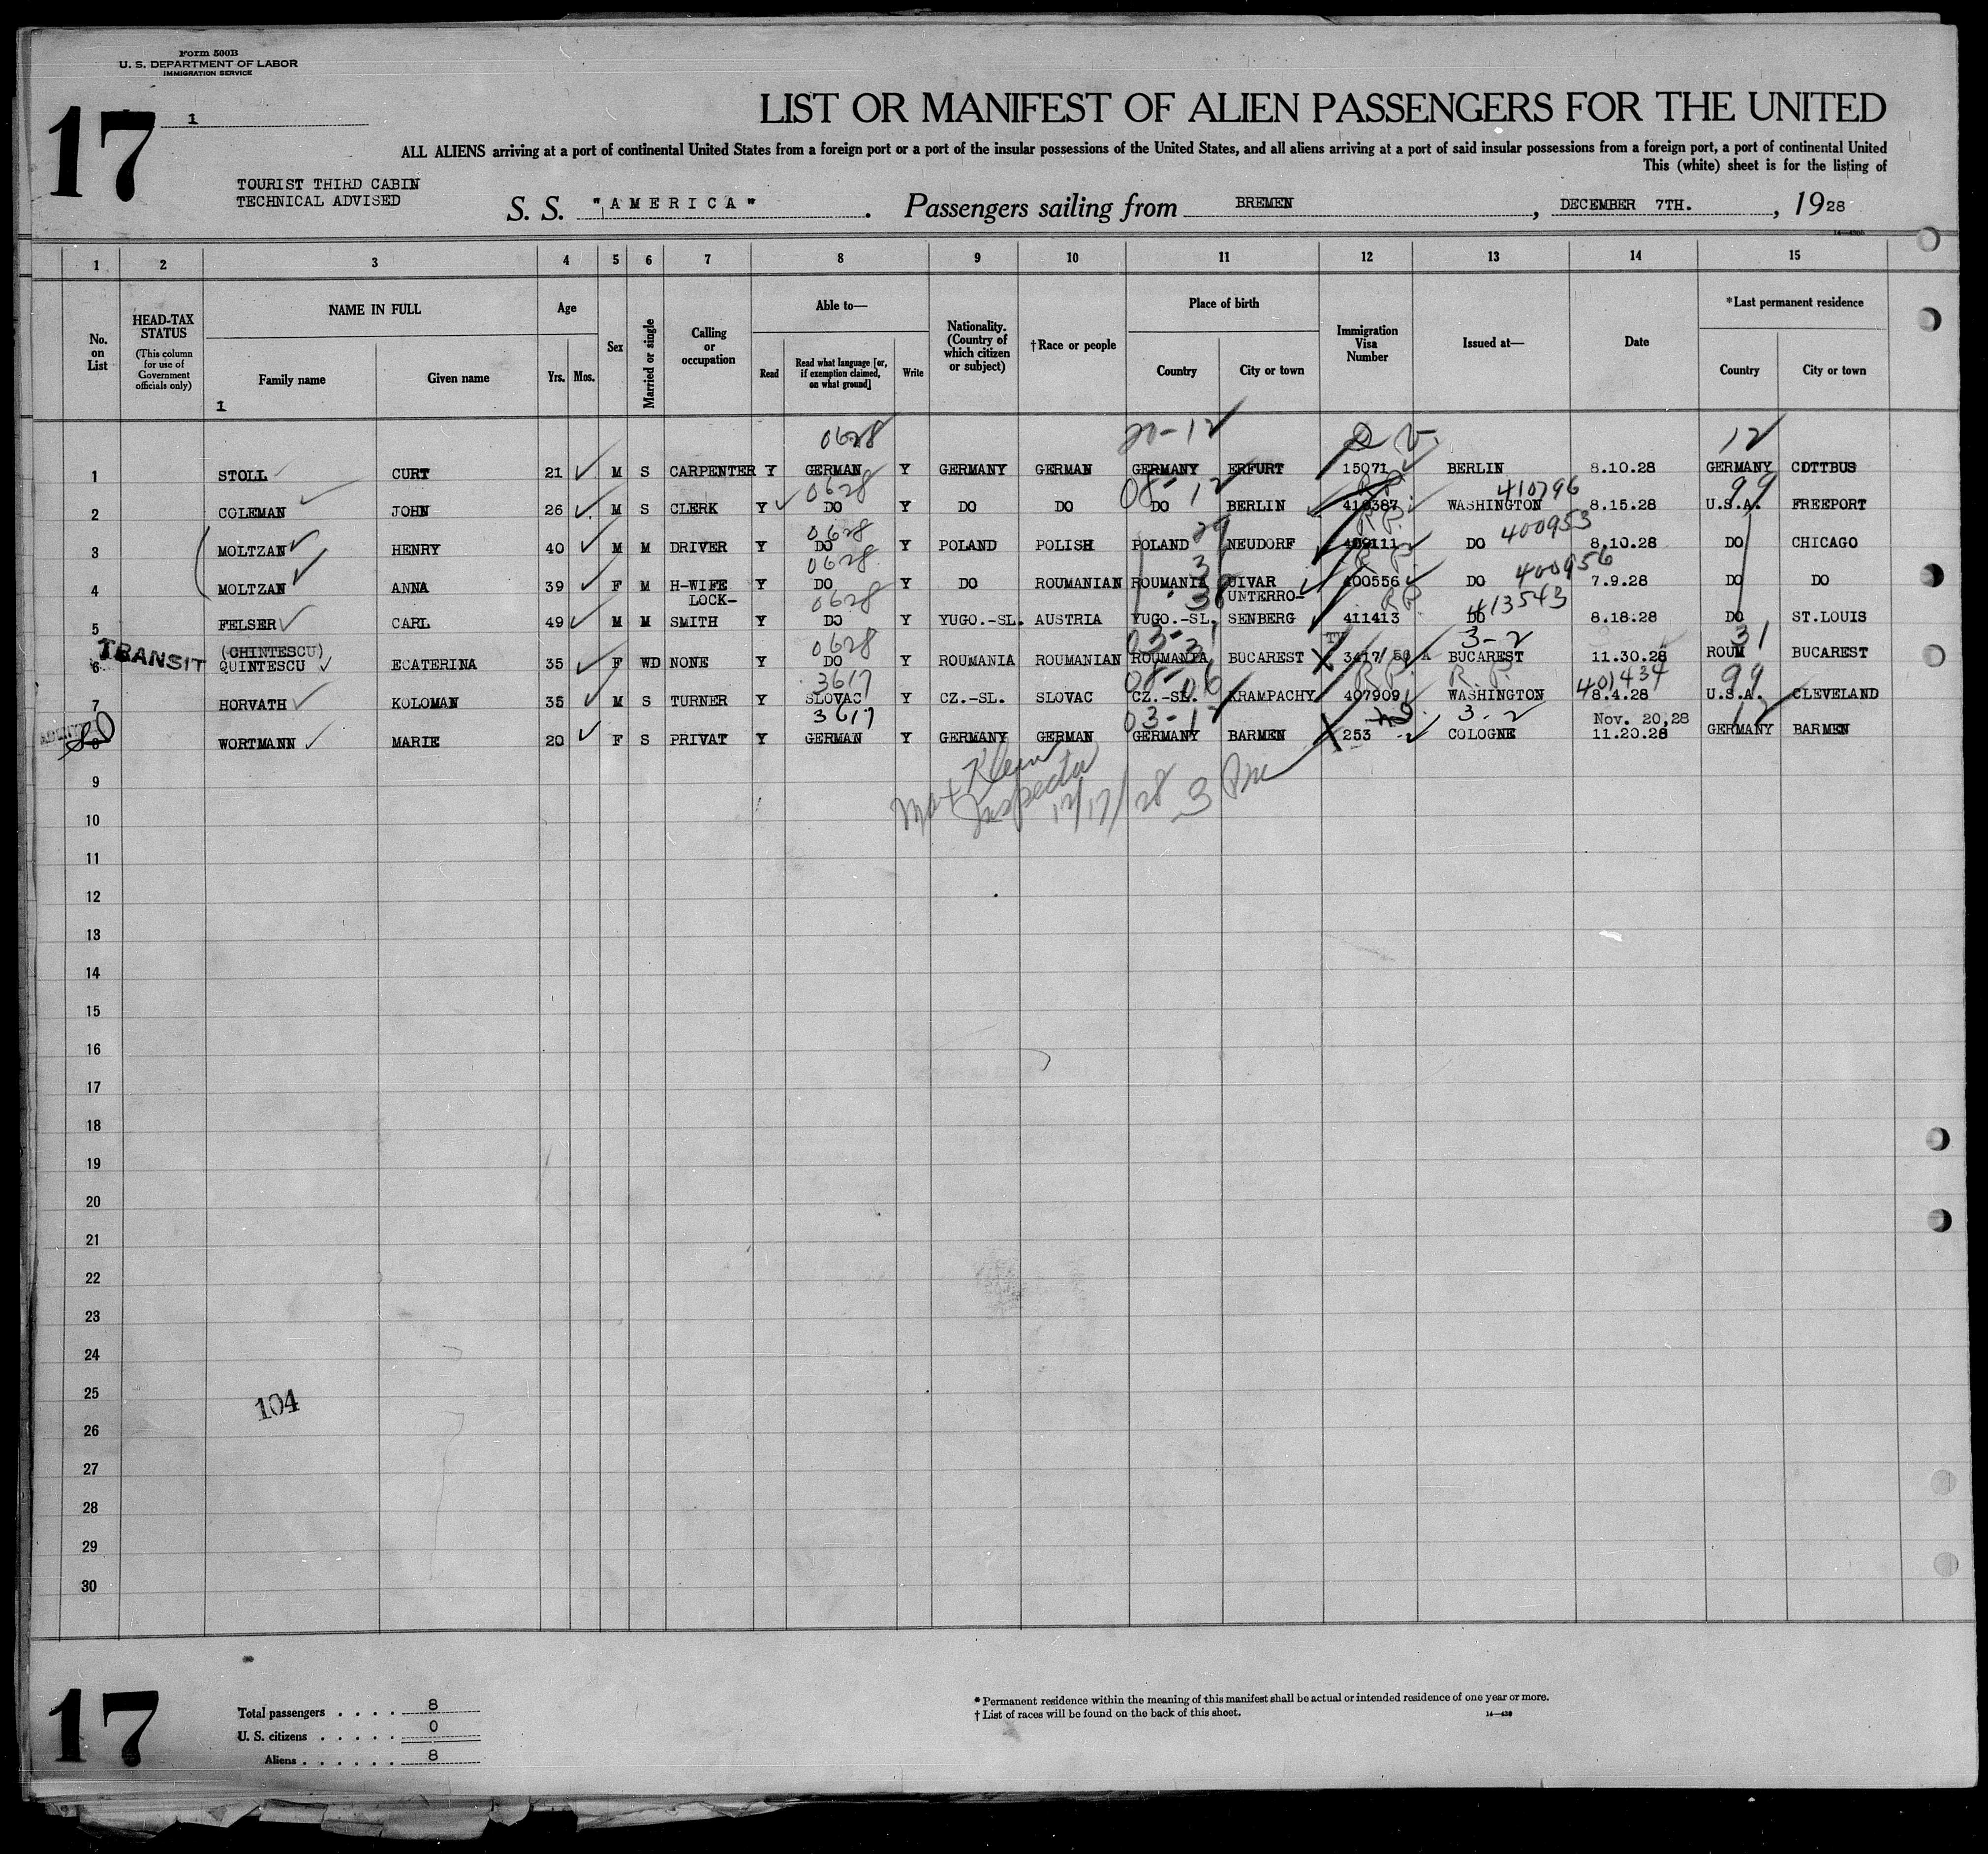 Form 500B
U. S. DEPARTMENT OF LABOR
IMMIGRATION SERVICE
17
1
LIST OR MANIFEST OF ALIEN PASSENGERS FOR THE UNITED
ALL ALIENS arriving at a port of continental United States from a foreign port or a port of the insular possessions of the United States, and all aliens arriving at a port of said insular possessions from a foreign port, a port of continental United
This (white) sheet is for the listing of
TOURIST THIRD CABIN
TECHNICAL ADVISED
S. S. "AMERICA". Passengers sailing from BREMEN, DECEMBER 7TH., 1928
1 2 3 4 5 6 7 8 9 10 11 12 13 14 15
No. on List
HEAD-TAX STATUS
(This column for use of Government officials only)
NAME IN FULL
Family name
Given name
1
Age
Yrs. Mos.
Sex
Married or single
Calling or occupation
Able to—
Read
Read what language [or, if exemption claimed, on what ground]
Write
Nationality. (Country of which citizen or subject)
†Race or people
Place of birth
Country
City or town
Immigration Visa Number
Issued at—
Date
*Last permanent residence
Country
City or town
0628 20-12 12
1 STOLL CURT 21 M S CARPENTER Y GERMAN Y GERMANY GERMAN GERMANY ERFURT 15071 BERLIN 8.10.28 GERMANY COTTBUS
0628 08-12 R.P. 410796 99
2 COLEMAN JOHN 26 M S CLERK Y DO Y DO DO DO BERLIN 410387 WASHINGTON 8.15.28 U.S.A. FREEPORT
0628 29 R.P. 400953
3 MOLTZAN HENRY 40 M M DRIVER Y DO Y POLAND POLISH POLAND NEUDORF 409111 DO 8.10.28 DO CHICAGO
0628 400956
4 MOLTZAN ANNA 39 F M H-WIFE Y DO Y DO ROUMANIAN ROUMANIA UIVAR 400556 DO 7.9.28 DO DO
LOCK- 0628 UNTERRO- R.P. 413543
5 FELSER CARL 49 M M SMITH Y DO Y YUGO.-SL. AUSTRIA YUGO.-SL. SENBERG 411413 DO 8.18.28 DO ST.LOUIS
TRANSIT (CHINTESCU) 0628 03-31 TV 3-2 31
6 QUINTESCU ECATERINA 35 F WD NONE Y DO Y ROUMANIA ROUMANIAN ROUMANIA BUCAREST 3417/ 56 A BUCAREST 11.30.28 ROUM BUCAREST
3617 08-06 R.P. R.P. 401434 99
7 HORVATH KOLOMAN 35 M S TURNER Y SLOVAC Y CZ.-SL. SLOVAC CZ.-SL. KRAMPACHY 407909 WASHINGTON 8.4.28 U.S.A. CLEVELAND
3617 03-12 3-2 Nov. 20,28 12
8 WORTMANN MARIE 20 F S PRIVAT Y GERMAN Y GERMANY GERMAN GERMANY BARMEN 253 COLOGNE 11.20.28 GERMANY BARMEN
Max Klein
Inspector
12/17/28 3 PM
9
10
11
12
13
14
15
16
17
18
19
20
21
22
23
24
25
104
26
27
28
29
30
17
Total passengers . . . . 8
U. S. citizens . . . . . 0
Aliens . . . . . . 8
* Permanent residence within the meaning of this manifest shall be actual or intended residence of one year or more.
† List of races will be found on the back of this sheet.
14—430